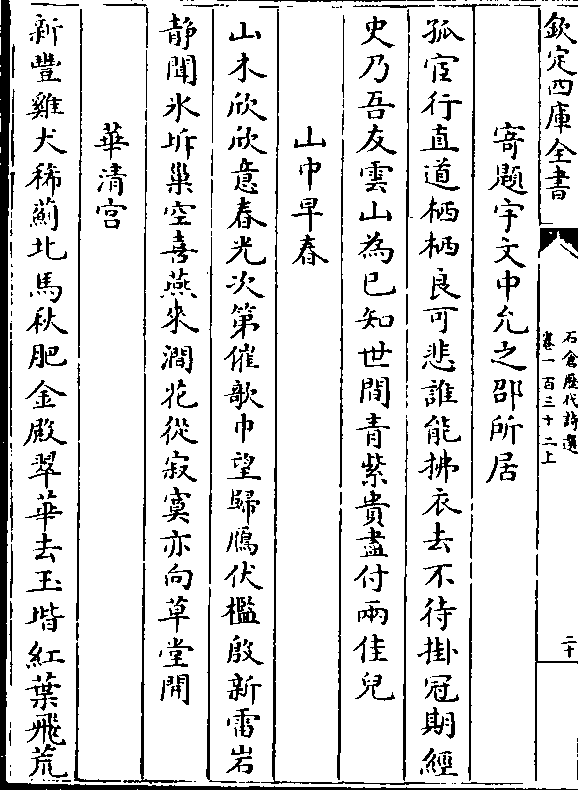 欽定四庫全書
石倉歷代詩選
卷一百三十二上
二十
寄題宇文中允之邵所居
孤宦行直道栖栖良可悲誰能拂衣去不待掛冠期經
史乃吾友雲山為已知世間青紫貴盡付兩佳兒
山中早春
山木欣欣意春光次第催歌巾望歸鴈伏檻殷新雷岩
静聞氷坼巢空喜燕來澗花從寂寞亦向草堂開
華清宮
新豐雞犬稀薊北馬秋肥金殿翠華去玉堦紅葉飛荒